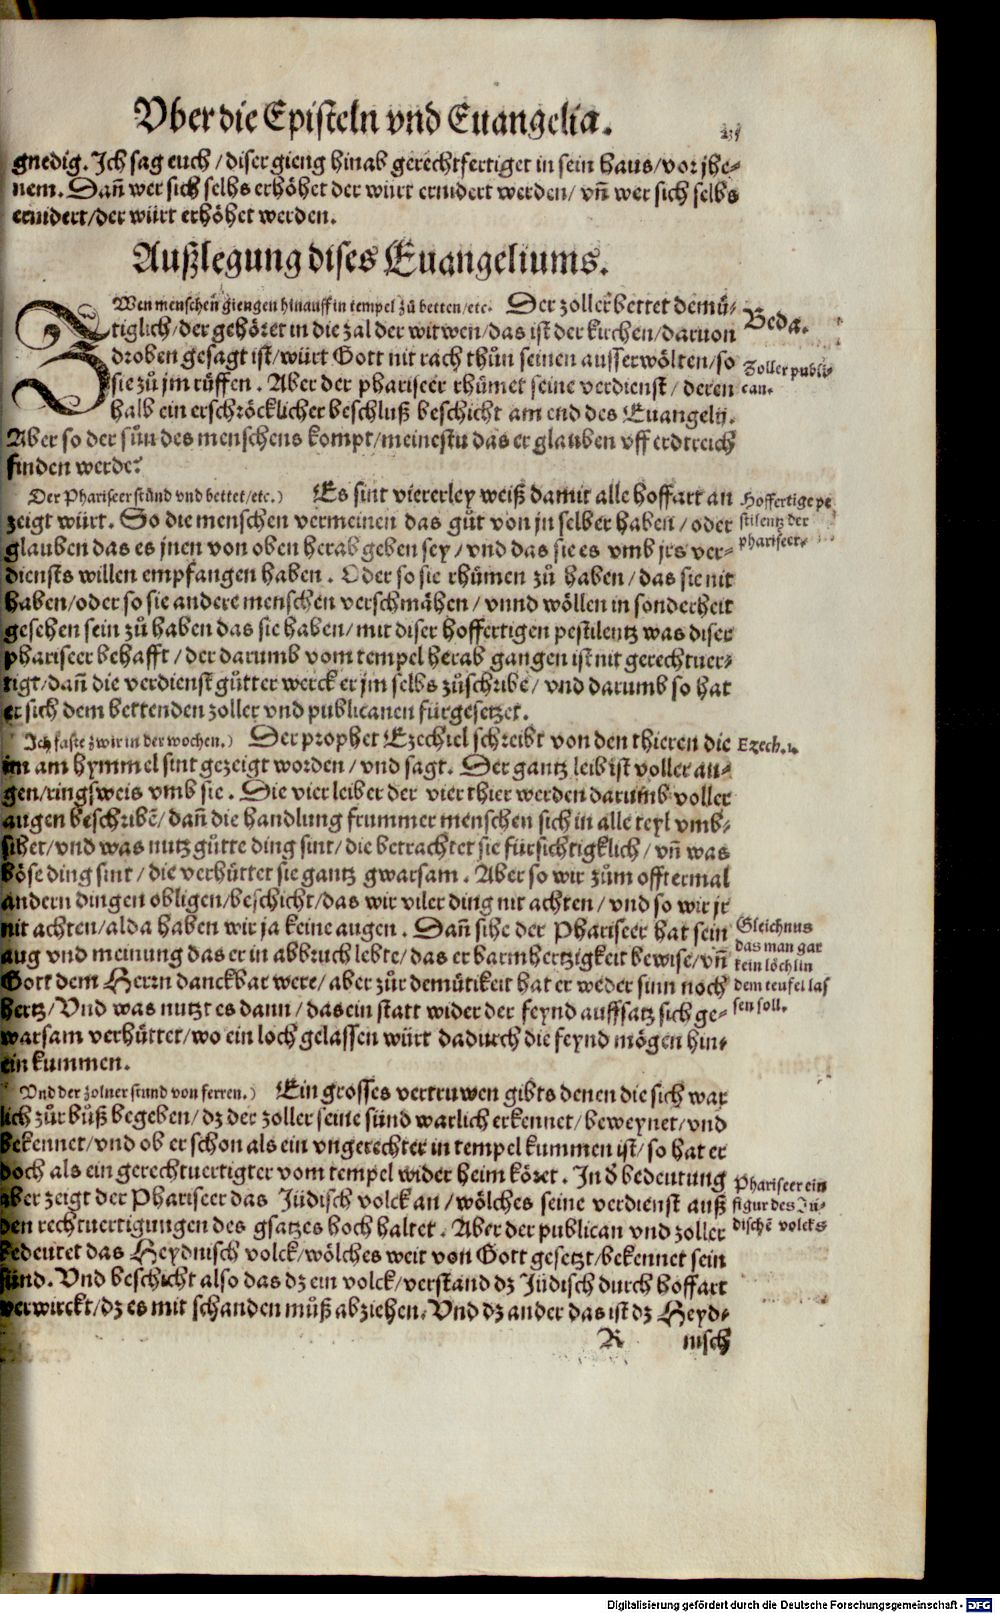 Vber die Episteln vnd Euangelia.
gnedig. Ich sag euch / diser gieng hinab gerechtfertiget in sein haus / vor jhe-
nem. Dañ wer sich selbs erhöhet der würt ernidert werden / vñ wer sich selbs
ernidert / der würt erhöhet werden.
Außlegung dises Euangeliums.
ZWen menschen giengen hinauff in tempel zů betten / etc. Der zoller bettet demü-
tiglich / der gehöret in die zal der witwen / das ist der kirchen / daruon
droben gesagt ist / würt Gott nit rach thůn seinen ausserwölten / so
sie zů jm rüffen. Aber der phariseer rhümet seine verdienst / deren
halb ein erschröcklicher beschluß beschicht am end des Euangelij.
Aber so der sůn des menschens kompt / meinestu das er glauben vff erdtreich
finden werde?
Beda.
Zoller publi-
can.
Der Phariseer stůnd vnd bettet / etc.) Es sint viererley weiß damit alle hoffart an
zeigt würt. So die menschen vermeinen das gůt von jn selber haben / oder
glauben das es jnen von oben herab geben sey / vnd das sie es vmb jrs ver-
diensts willen empfangen haben. Oder so sie rhümen zů haben / das sie nit
haben / oder so sie andere menschen verschmähen / vnnd wöllen in sonderheit
gesehen sein zů haben das sie haben / mit diser hoffertigen pestilentz was diser
phariseer behafft / der darumb vom tempel herab gangen ist nit gerechtuer-
tigt / dañ die verdienst gůtter werck er jm selbs zůschribe / vnd darumb so hat
er sich dem bettenden zoller vnd publicanen fürgesetzet.
Hoffertige pe
stilentz der
phariseer.
Ich faste zwir in der wochen.) Der prophet Ezechiel schreibt von den thieren die
im am hymmel sint gezeigt worden / vnd sagt. Der gantz leib ist voller au-
gen / ringsweis vmb sie. Die vier leiber der vier thier werden darumb voller
augen beschribē / dañ die handlung frummer menschen sich in alle teyl vmb-
sihet / vnd was nutz gůtte ding sint / die betrachtet sie fürsichtigklich / vñ was
böse ding sint / die verhüttet sie gantz gwarsam. Aber so wir zům offtermal
andern dingen obligen / beschicht / das wir viler ding nit achten / vnd so wir jr
nit achten / alda haben wir ja keine augen. Dañ sihe der Phariseer hat sein
aug vnd meinung das er in abbruch lebte / das er barmhertzigkeit bewise / vñ
Gott dem Herrn danckbar were / aber zůr demütikeit hat er weder sinn noch
hertz / Vnd was nutzt es dann / das ein statt wider der feynd auffsatz sich ge-
warsam verhüttet / wo ein loch gelassen würt dadurch die feynd mögen hin-
ein kummen.
Ezech. 1.
Gleichnus
das man gar
kein löchlin
dem teufel las
sen soll.
Vnd der zolner stund von ferren.) Ein grosses vertruwen gibts denen die sich war
lich zůr bůß begeben / dz der zoller seine sünd warlich erkennet / beweynet / vnd
bekennet / vnd ob er schon als ein vngerechter in tempel kummen ist / so hat er
doch als ein gerechtuertigter vom tempel wider heim köret. In d̄ bedeutung
aber zeigt der Phariseer das Jüdisch volck an / wölches seine verdienst auß
den rechtuertigungen des gsatzes hoch haltet. Aber der publican vnd zoller
bedeutet das Heydnisch volck / wölches weit von Gott gesetzt / bekennet sein
sünd. Vnd beschicht also das dz ein volck / verstand dz Jüdisch durch hoffart
verwirckt / dz es mit schanden můß abziehen. Vnd dz ander das ist dz Heyd-
Phariseer ein
figur des Jü-
dischē volcks
R nisch
Digitalisierung gefördert durch die Deutsche Forschungsgemeinschaft - DFG